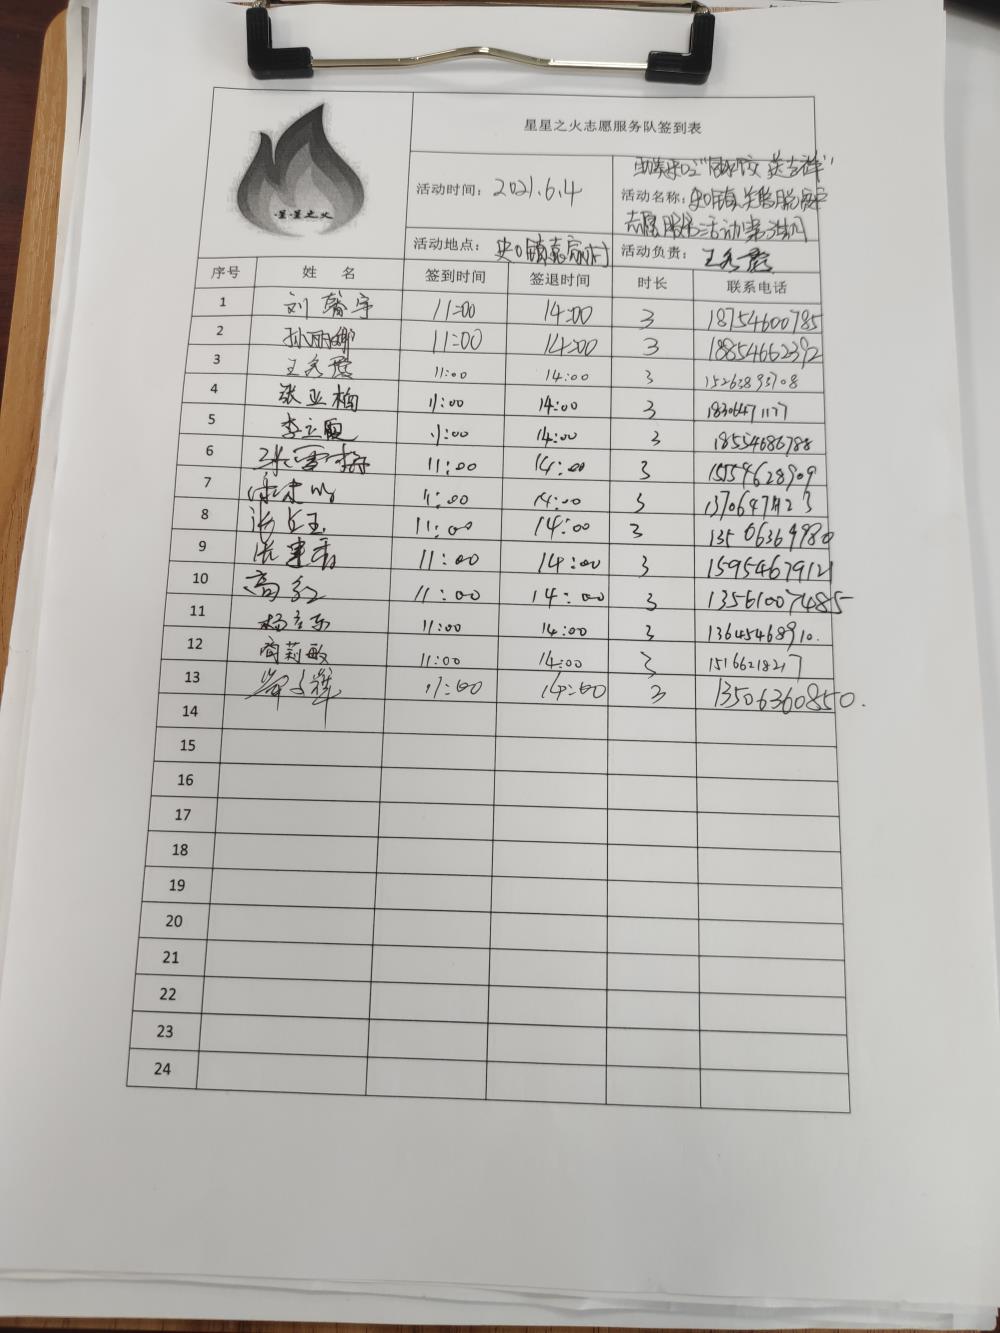 星星之火志愿服务队签到表
星星之火
活动时间：2021.6.4
活动名称：
志愿服务活动
活动地点：史口镇
活动负责：王
序号 姓 名 签到时间 签退时间 时长 联系电话
1 刘馨宇 11:00 14:00 3 18754600785
2 孙丽娜 11:00 14:00 3 18854662392
3 王 11:00 14:00 3 15263893708
4 张亚楠 11:00 14:00 3
5 李立霞 11:00 14:00 3 18554686788
6 11:00 14:00 3
7 11:00 14:00 3
8 11:00 14:00 3 13506369980
9 11:00 14:00 3 15954679121
10 高红 11:00 14:00 3 13561007485
11 杨立东 11:00 14:00 3 13645468910.
12 商莉敏 11:00 14:00 3 15166218217
13 11:00 14:00 3 13506360850.
14
15
16
17
18
19
20
21
22
23
24